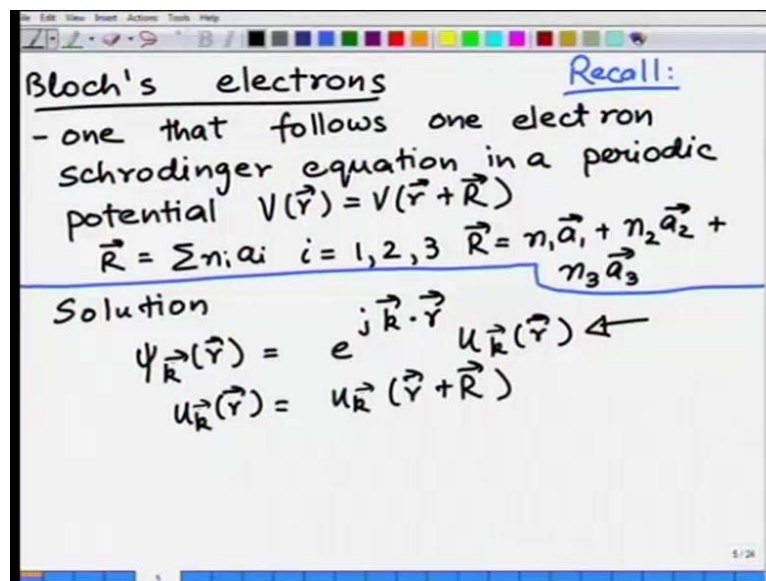 File Edit View Insert Actions Tools Help
Bloch's electrons Recall:
- one that follows one electron
schrodinger equation in a periodic
potential V(r⃗) = V(r⃗ + R⃗)
R⃗ = Σ nᵢ aᵢ i = 1, 2, 3 R⃗ = n₁a⃗₁ + n₂a⃗₂ +
n₃a⃗₃
Solution
ψ_k⃗(r⃗) = e^{j k⃗·r⃗} u_k⃗(r⃗) ⇐
u_k⃗(r⃗) = u_k⃗(r⃗ + R⃗)
5 / 24
5